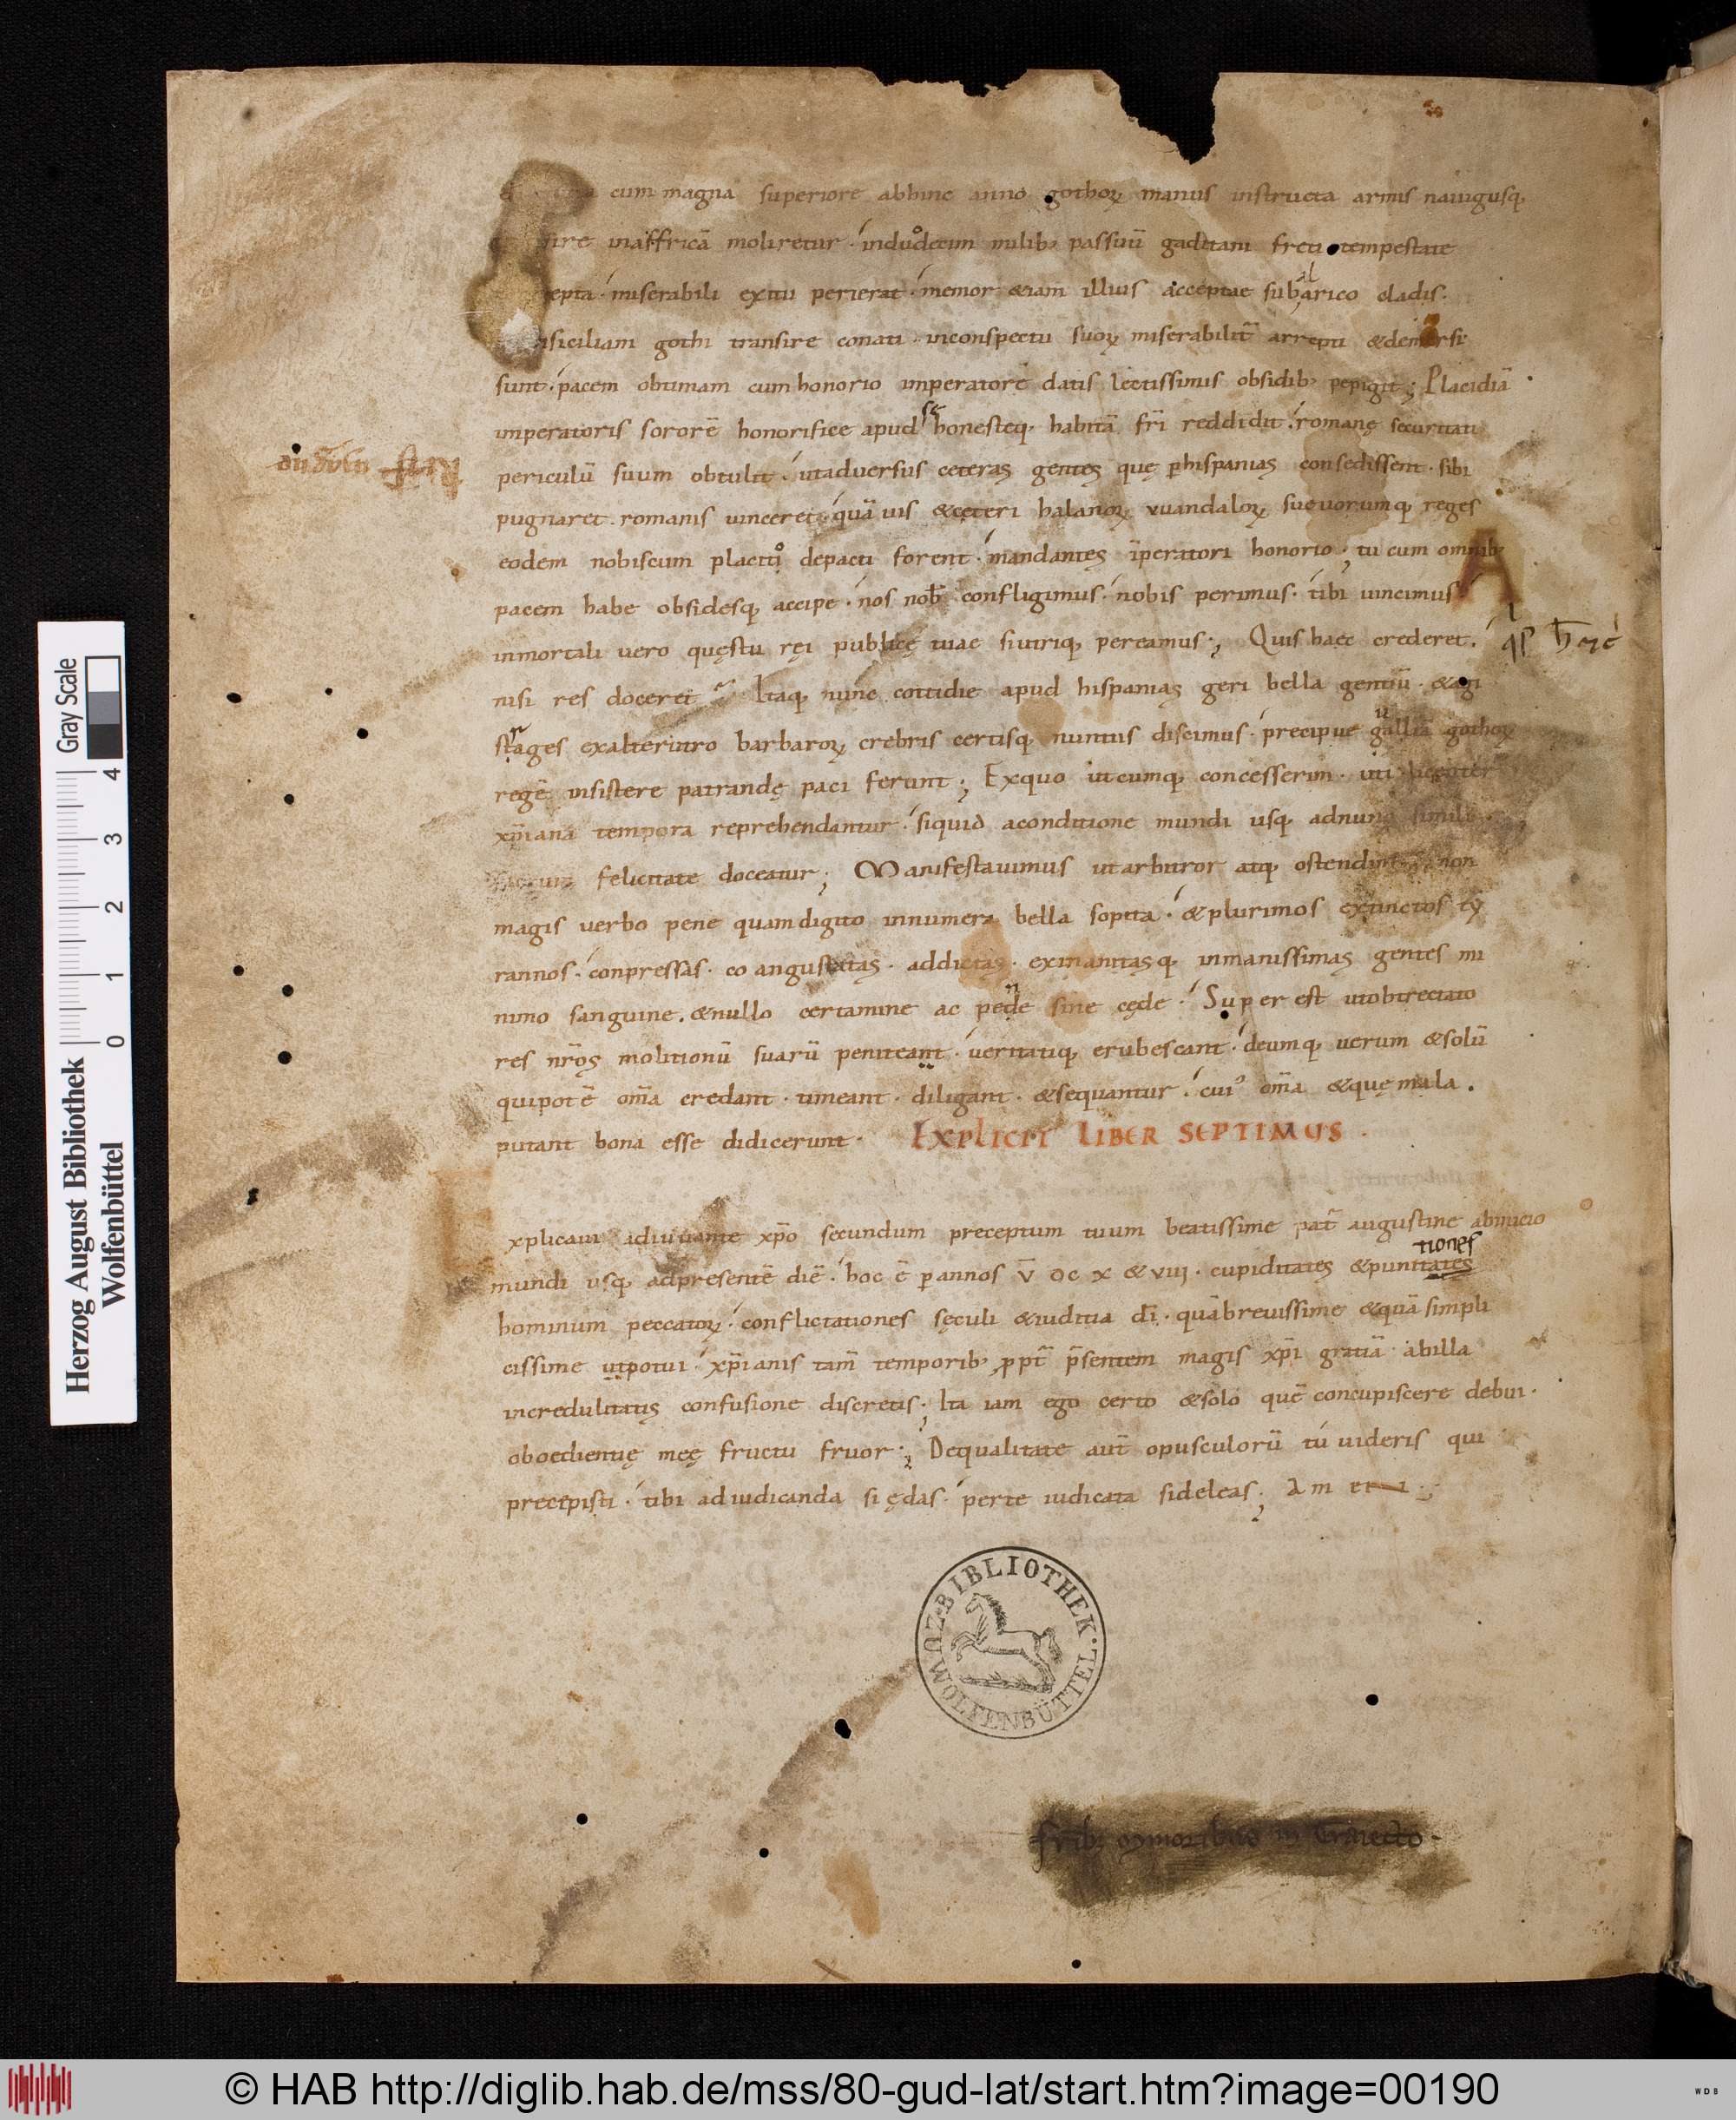 cum magna superiore abhinc anno gothoꝝ manus instructa armis nauigiisq;
sire inaffricā moliretur · induodecim milib; passuū gaditani freti tempestate
repta · miserabili exitu perierat · memor &iam illius acceptae subalarico cladis ·
insiciliam gothi transire conati · inconspectu suoꝝ miserabilit̄ arrepti &demersi
sunt · pacem obtimam cum honorio imperatore datis lectissimis obsidib; pepigit; Placidiā
imperatoris sororē honorifice apud sę honesteq; habitā fr̄i reddidit · romanę securitati
periculū suum obtulit · utaduersus ceteras gentes quę p̱hispanias consedissent · sibi
pugnaret · romanis uinceret · quāuis &cęteri halanoꝝ vuandaloꝝ sueuorumq; reges
eodem nobiscum placito depacti forent · mandantes īperatori honorio; tu cum omnib;
pacem habe obsidesq; accipe · nos nob̄ confligimus · nobis perimus · tibi uincimus
A
inmortali uero quęstu ręi publicę tuae siutriq; pereamus; Quis haec crederet ·
nisi res doceret Itaq; nunc cottidie apud hispanias geri bella gentiū · &agi
strages exalterutro barbaroꝝ crebris certisq; nuntiis discimus · precipue gualliā gothoꝝ
regē insistere patrandę paci ferunt; Exquo utcumq; concesserim · uti licenter
xp̄iana tempora reprehendantur · siquid aconditione mundi usq; adnunc simili
felicitate doceatur; Manifestauimus utarbitror atq; ostendi non
magis uerbo pene quam digito innumera bella sopita · &plurimos extinctos ty
rannos · conpressas · coangustatas · addictas · exinanitasq; inmanissimas gentes mi
nimo sanguine · &nullo certamine ac pene sine cęde · Super est utobtrectato
res nr̄os molitionū suarū peniteant · ueritatiq; erubescant · deumq; uerum &solū
quipotē om̄a credant · timeant · diligant · &sequantur · cui' om̄a &quę mala ·
putant bona esse didicerunt · EXPLICIT LIBER SEPTIMUS ·
Explicaui adiuuante xp̄o secundum preceptum tuum beatissime pat̄ augustine abinicio
tiones
mundi usq; adpresentē diē · hoc ē p̱annos v̄ dc x & viii · cupiditates &punitates
hominum peccatoꝝ · conflictationes sęculi &iuditia dī · quābreuissime &quā simpli
cissime utpotui · xp̄ianis tam̄ temporib; ꝓpt̄ p̄sentem magis xp̄i gratiā abilla
incredulitatis confusione discretis; Ita iam ego certo &solo quē concupiscere debui ·
oboedientię meę fructu fruor; Dequalitate aut̄ opusculorū tú uideris qui
precepisti · tibi adiudicanda si ędas · perte iudicata sideleas; Amen
BIBLIOTHEK · ZU WOLFENBÜTTEL
in Traiecto ·
Herzog August Bibliothek
Wolfenbüttel
Gray Scale
0 1 2 3 4
© HAB http://diglib.hab.de/mss/80-gud-lat/start.htm?image=00190
WDB